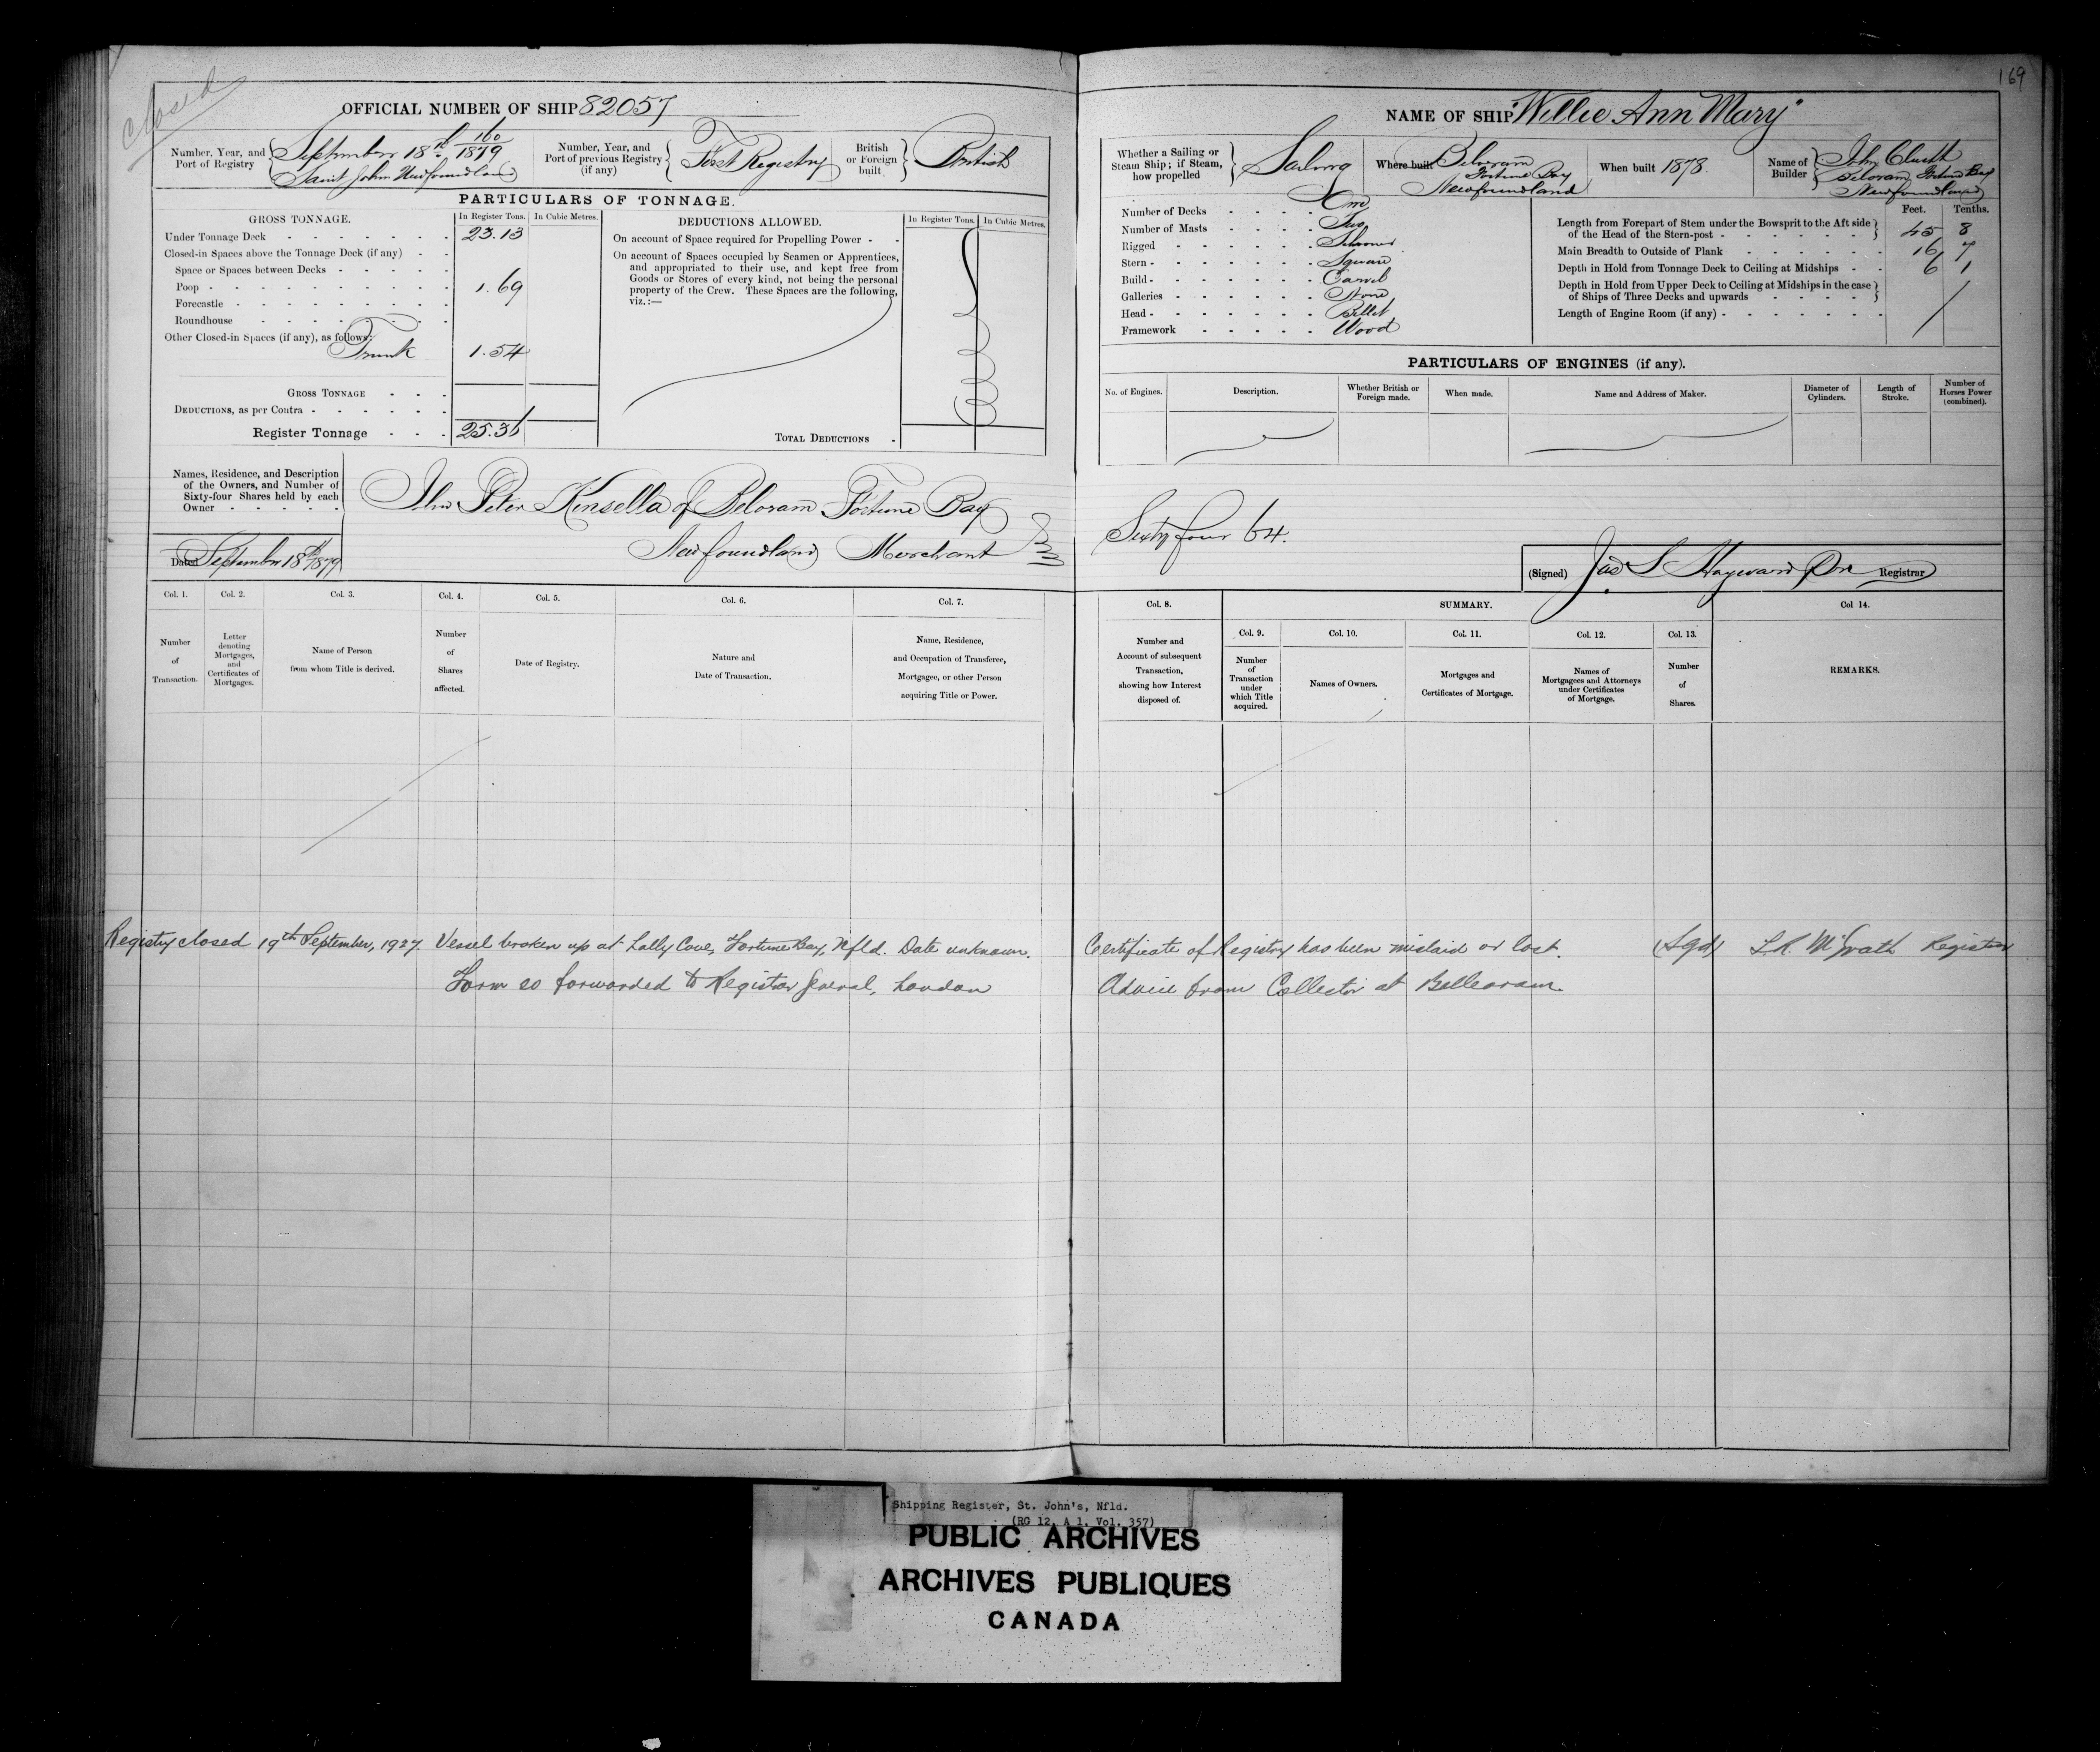 closed
169
OFFICIAL NUMBER OF SHIP 82057
NAME OF SHIP "Willie Ann Mary"
Number, Year, and Port of Registry
September 18th 160/1879
Saint John Newfoundland
Number, Year, and Port of previous Registry (if any)
First Registry
British or Foreign built
British
Whether a Sailing or Steam Ship; if Steam, how propelled
Sailing
Where built
Beloram
Fortune Bay
Newfoundland
When built 1878.
Name of Builder
John Cluett
Beloram Fortune Bay
Newfoundland
PARTICULARS OF TONNAGE.
GROSS TONNAGE.
In Register Tons.
In Cubic Metres.
Under Tonnage Deck 23.13
Closed-in Spaces above the Tonnage Deck (if any)
Space or Spaces between Decks
Poop 1.69
Forecastle
Roundhouse
Other Closed-in Spaces (if any), as follows:
Trunk 1.54
GROSS TONNAGE
DEDUCTIONS, as per Contra
Register Tonnage 25.36
DEDUCTIONS ALLOWED.
In Register Tons.
In Cubic Metres.
On account of Space required for Propelling Power
On account of Spaces occupied by Seamen or Apprentices,
and appropriated to their use, and kept free from
Goods or Stores of every kind, not being the personal
property of the Crew. These Spaces are the following,
viz.:—
TOTAL DEDUCTIONS
Number of Decks One
Number of Masts Two
Rigged Schooner
Stern Square
Build Carvel
Galleries None
Head Billet
Framework Wood
Feet. Tenths.
Length from Forepart of Stem under the Bowsprit to the Aft side
of the Head of the Stern-post 45 8
Main Breadth to Outside of Plank 16 7
Depth in Hold from Tonnage Deck to Ceiling at Midships 6 1
Depth in Hold from Upper Deck to Ceiling at Midships in the case
of Ships of Three Decks and upwards
Length of Engine Room (if any)
PARTICULARS OF ENGINES (if any).
No. of Engines.
Description.
Whether British or Foreign made.
When made.
Name and Address of Maker.
Diameter of Cylinders.
Length of Stroke.
Number of Horses Power (combined).
Names, Residence, and Description
of the Owners, and Number of
Sixty-four Shares held by each
Owner
John Peter Kinsella of Beloram Fortune Bay
Newfoundland Merchant
Sixty four 64.
Dated September 18th 1879
(Signed) Jas S Hayward Registrar
Col. 1.
Number of Transaction.
Col. 2.
Letter denoting Mortgages, and Certificates of Mortgages.
Col. 3.
Name of Person from whom Title is derived.
Col. 4.
Number of Shares affected.
Col. 5.
Date of Registry.
Col. 6.
Nature and Date of Transaction.
Col. 7.
Name, Residence, and Occupation of Transferee, Mortgagee, or other Person acquiring Title or Power.
Col. 8.
Number and Account of subsequent Transaction, showing how Interest disposed of.
SUMMARY.
Col. 9.
Number of Transaction under which Title acquired.
Col. 10.
Names of Owners.
Col. 11.
Mortgages and Certificates of Mortgage.
Col. 12.
Names of Mortgagees and Attorneys under Certificates of Mortgage.
Col. 13.
Number of Shares.
Col 14.
REMARKS.
Registry closed 19th September, 1927. Vessel broken up at Lally Cove, Fortune Bay, Nfld. Date unknown. Certificate of Registry has been mislaid or lost. (Sgd) L.R. McGrath Registrar
Form 20 forwarded to Registrar General, London Advice from Collector at Belleoram.
Shipping Register, St. John's, Nfld.
(RG 12, A 1, Vol. 357)
PUBLIC ARCHIVES
ARCHIVES PUBLIQUES
CANADA